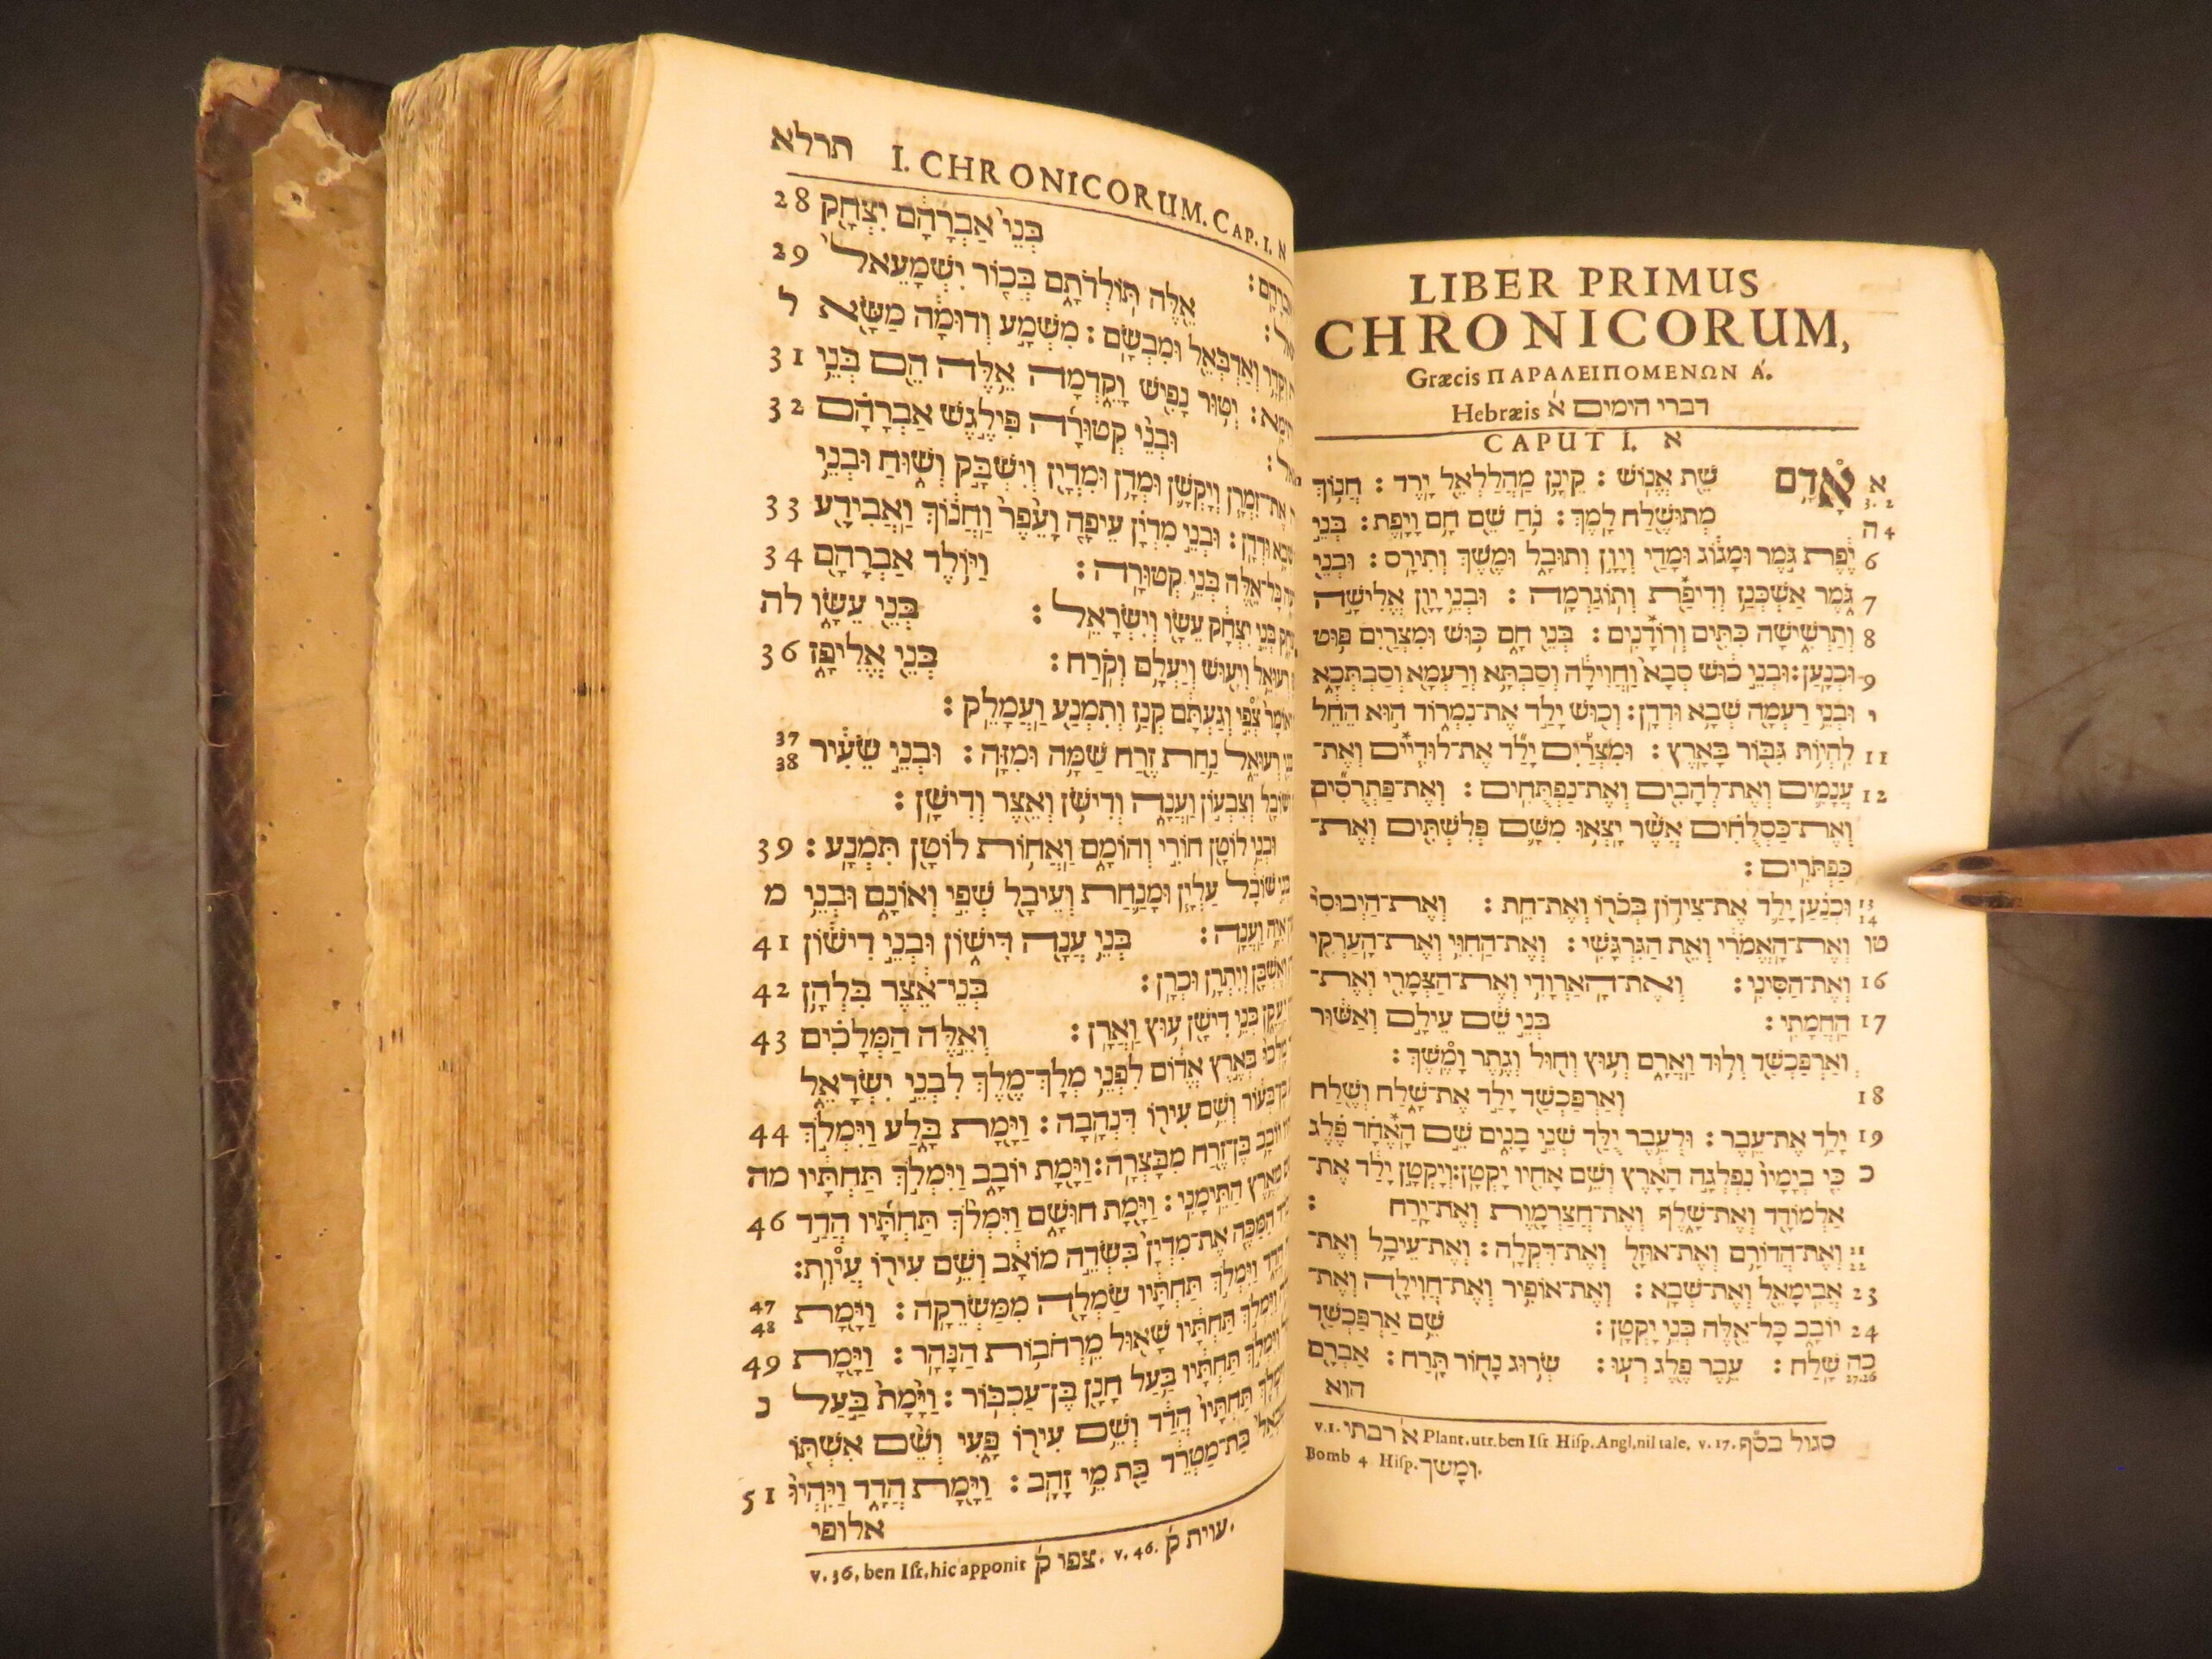 LIBER PRIMUS
CHRONICORUM,
Græcis ΠΑΡΑΛΕΙΠΟΜΕΝΩΝ Α΄.
Hebræis דברי הימים א
CAPUT I. א
א אָדָם שֵׁת אֱנוֹשׁ׃ קֵינָן מַהֲלַלְאֵל יָרֶד׃ חֲנוֹךְ
3.2
4 ה מְתוּשֶׁלַח לָמֶךְ׃ נֹחַ שֵׁם חָם וָיָפֶת׃ בְּנֵי
6 יֶפֶת גֹּמֶר וּמָגוֹג וּמָדַי וְיָוָן וְתוּבָל וּמֶשֶׁךְ וְתִירָס׃ וּבְנֵי
7 גֹּמֶר אַשְׁכְּנַז וְדִיפַת וְתוֹגַרְמָה׃ וּבְנֵי יָוָן אֱלִישָׁה
8 וְתַרְשִׁישָׁה כִּתִּים וְרוֹדָנִים׃ בְּנֵי חָם כּוּשׁ וּמִצְרַיִם פּוּט
9 וּכְנָעַן׃ וּבְנֵי כוּשׁ סְבָא וַחֲוִילָה וְסַבְתָּא וְרַעְמָא וְסַבְתְּכָא
י וּבְנֵי רַעְמָה שְׁבָא וּדְדָן׃ וְכוּשׁ יָלַד אֶת־נִמְרוֹד הוּא הֵחֵל
11 לִהְיוֹת גִּבּוֹר בָּאָרֶץ׃ וּמִצְרַיִם יָלַד אֶת־לוּדִיִּים וְאֶת־
12 עֲנָמִים וְאֶת־לְהָבִים וְאֶת־נַפְתֻּחִים׃ וְאֶת־פַּתְרֻסִים
וְאֶת־כַּסְלֻחִים אֲשֶׁר יָצְאוּ מִשָּׁם פְּלִשְׁתִּים וְאֶת־
כַּפְתֹּרִים׃
13 14 וּכְנַעַן יָלַד אֶת־צִידוֹן בְּכֹרוֹ וְאֶת־חֵת׃ וְאֶת־הַיְבוּסִי
טו וְאֶת־הָאֱמֹרִי וְאֵת הַגִּרְגָּשִׁי׃ וְאֶת־הַחִוִּי וְאֶת־הָעַרְקִי
16 וְאֶת־הַסִּינִי׃ וְאֶת־הָאַרְוָדִי וְאֶת־הַצְּמָרִי וְאֶת־
17 הַחֲמָתִי׃ בְּנֵי שֵׁם עֵילָם וְאַשּׁוּר
וְאַרְפַּכְשַׁד וְלוּד וַאֲרָם וְעוּץ וְחוּל וְגֶתֶר וָמֶשֶׁךְ׃
18 וְאַרְפַּכְשַׁד יָלַד אֶת־שָׁלַח וְשֶׁלַח
19 יָלַד אֶת־עֵבֶר׃ וּלְעֵבֶר יֻלַּד שְׁנֵי בָנִים שֵׁם הָאֶחָד פֶּלֶג
כ כִּי בְיָמָיו נִפְלְגָה הָאָרֶץ וְשֵׁם אָחִיו יָקְטָן׃ וְיָקְטָן יָלַד אֶת־
אַלְמוֹדָד וְאֶת־שָׁלֶף וְאֶת־חֲצַרְמָוֶת וְאֶת־יָרַח׃
21 22 וְאֶת־הֲדוֹרָם וְאֶת־אוּזָל וְאֶת־דִּקְלָה׃ וְאֶת־עֵיבָל וְאֶת־
23 אֲבִימָאֵל וְאֶת־שְׁבָא׃ וְאֶת־אוֹפִיר וְאֶת־חֲוִילָה וְאֶת־
24 יוֹבָב כָּל־אֵלֶּה בְּנֵי יָקְטָן׃ שֵׁם אַרְפַּכְשַׁד
כה שָׁלַח׃ עֵבֶר פֶּלֶג רְעוּ׃ שְׂרוּג נָחוֹר תָּרַח׃ אַבְרָם
27.26
הוא
v.1. א רבתי Plant. utr. ben Isr. Hisp. Angl. nil tale. v. 17. סגול בסף
Bomb 4 Hisp. ומשך.
תרלא I. CHRONICORUM. CAP. I. א
28 בְּנֵי אַבְרָהָם יִצְחָק
29 אֵלֶּה תֹּלְדוֹתָם בְּכוֹר יִשְׁמָעֵאל
ל וְקֵדָר וְאַדְבְּאֵל וּמִבְשָׂם׃ מִשְׁמָע וְדוּמָה מַשָּׂא
31 יְטוּר נָפִישׁ וָקֵדְמָה אֵלֶּה הֵם בְּנֵי
32 וּבְנֵי קְטוּרָה פִּילֶגֶשׁ אַבְרָהָם
אֶת־זִמְרָן וְיָקְשָׁן וּמְדָן וּמִדְיָן וְיִשְׁבָּק וְשׁוּחַ וּבְנֵי
33 וּדְדָן׃ וּבְנֵי מִדְיָן עֵיפָה וָעֵפֶר וַחֲנוֹךְ וַאֲבִידָע
34 כָּל־אֵלֶּה בְּנֵי קְטוּרָה׃ וַיּוֹלֶד אַבְרָהָם
לה בְּנֵי יִצְחָק עֵשָׂו וְיִשְׂרָאֵל׃ בְּנֵי עֵשָׂו
36 רְעוּאֵל וִיעוּשׁ וְיַעְלָם וְקֹרַח׃ בְּנֵי אֱלִיפָז
צְפִי וְגַעְתָּם קְנַז וְתִמְנָע וַעֲמָלֵק׃
37 38 רְעוּאֵל נַחַת זֶרַח שַׁמָּה וּמִזָּה׃ וּבְנֵי שֵׂעִיר
וְצִבְעוֹן וַעֲנָה וְדִישֹׁן וְאֵצֶר וְדִישָׁן׃
39 וּבְנֵי לוֹטָן חוֹרִי וְהוֹמָם וַאֲחוֹת לוֹטָן תִּמְנָע׃
מ בְּנֵי שׁוֹבָל עַלְיָן וּמָנַחַת וְעֵיבָל שְׁפִי וְאוֹנָם וּבְנֵי
41 וַעֲנָה׃ בְּנֵי עֲנָה דִּישׁוֹן וּבְנֵי דִישׁוֹן
42 וְאֶשְׁבָּן וְיִתְרָן וּכְרָן׃ בְּנֵי־אֵצֶר בִּלְהָן
43 בְּנֵי דִישׁוֹן עוּץ וַאֲרָן׃ וְאֵלֶּה הַמְּלָכִים
בְּאֶרֶץ אֱדוֹם לִפְנֵי מְלָךְ־מֶלֶךְ לִבְנֵי יִשְׂרָאֵל
44 בְּעוֹר וְשֵׁם עִירוֹ דִּנְהָבָה׃ וַיָּמָת בָּלַע וַיִּמְלֹךְ
מה יוֹבָב בֶּן־זֶרַח מִבָּצְרָה׃ וַיָּמָת יוֹבָב וַיִּמְלֹךְ תַּחְתָּיו
46 מֵאֶרֶץ הַתֵּימָנִי׃ וַיָּמָת חוּשָׁם וַיִּמְלֹךְ תַּחְתָּיו הֲדַד
הַמַּכֶּה אֶת־מִדְיָן בִּשְׂדֵה מוֹאָב וְשֵׁם עִירוֹ עֲיוֹת׃
47 48 הֲדָד וַיִּמְלֹךְ תַּחְתָּיו שַׂמְלָה מִמַּשְׂרֵקָה׃ וַיָּמָת
49 וַיִּמְלֹךְ תַּחְתָּיו שָׁאוּל מֵרְחֹבוֹת הַנָּהָר׃ וַיָּמָת
נ וַיִּמְלֹךְ תַּחְתָּיו בַּעַל חָנָן בֶּן־עַכְבּוֹר׃ וַיָּמָת בַּעַל
תַּחְתָּיו הֲדַד וְשֵׁם עִירוֹ פָּעִי וְשֵׁם אִשְׁתּוֹ
51 בַּת־מַטְרֵד בַּת מֵי זָהָב׃ וַיָּמָת הֲדָד וַיִּהְיוּ
אלופי
v. 36, ben Isr. hic apponit צפו ק. v. 46. עוית ק.